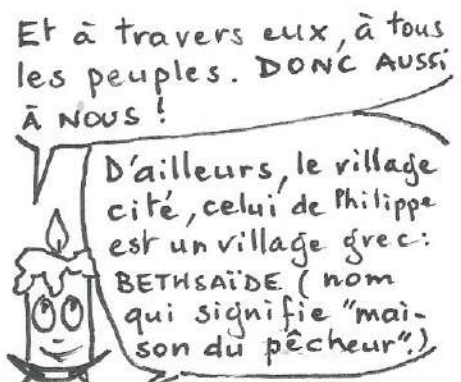 Et à travers eux, à tous
les peuples. DONC AUSSI
À NOUS !
D'ailleurs, le village
cité, celui de Philippe
est un village grec:
BETHSAÏDE ( nom
qui signifie "mai-
son du pêcheur".)